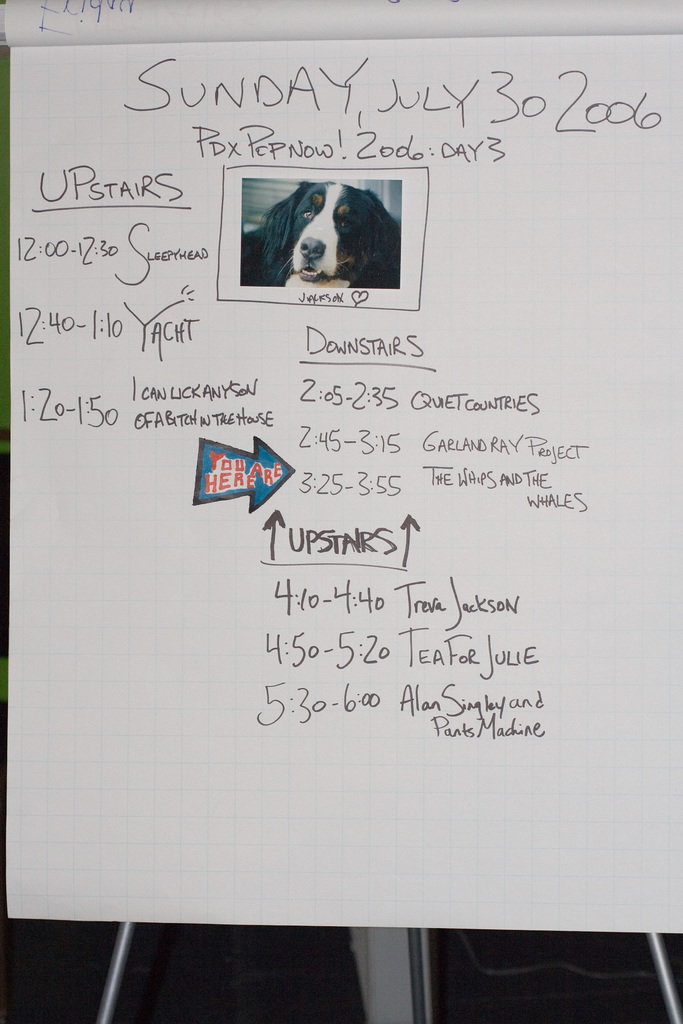 SUNDAY, JULY 30 2006
PDX POP NOW! 2006: DAY 3
UPSTAIRS
12:00-12:30 SLEEPYHEAD
12:40-1:10 YACHT
1:20-1:50 I CAN LICK ANY SON
OF A BITCH IN THE HOUSE
JACKSON ♡
DOWNSTAIRS
2:05-2:35 QUIET COUNTRIES
2:45-3:15 GARLAND RAY PROJECT
YOU ARE
HERE
3:25-3:55 THE WHIPS AND THE
WHALES
↑ UPSTAIRS ↑
4:10-4:40 Treva Jackson
4:50-5:20 TEA FOR JULIE
5:30-6:00 Alan Singley and
Pants Machine